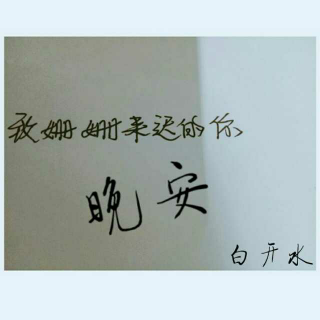 致姗姗来迟的你
晚安
白开水